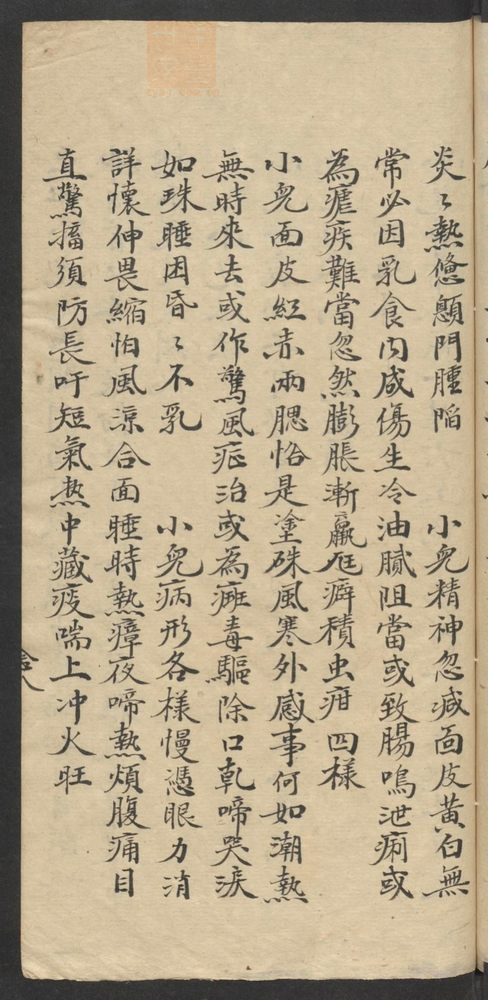 炎〻熱倦顖門腫陷　小兒精神忽减面皮黃白無
常必因乳食内成傷生冷油膩阻當或致腸鳴泄痢或
為瘧疾難當忽然膨脹漸羸尫癖積虫疳四樣
小兒面皮紅赤兩腮恰是塗硃風寒外感事何如潮熱
無時來去或作驚風症治或為癍毒驅除口乾啼哭淚
如珠睡困昏〻不乳　小兒病形各樣慢憑眼力消
詳懷伸畏縮怕風涼合面睡時熱瘴夜啼熱煩腹痛目
直驚搐須防長吁短氣热中藏痰喘上冲火旺